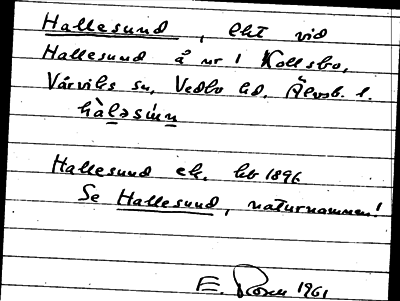 Hallesund, lht vid
Hallesund å nr 1 Kollsbo,
Vårviks sn, Vedbo hd, Älvsb. l.
hàləsún
Hallesund ek. kb 1896
Se Hallesund, naturnamnen!
E. Rosen 1961